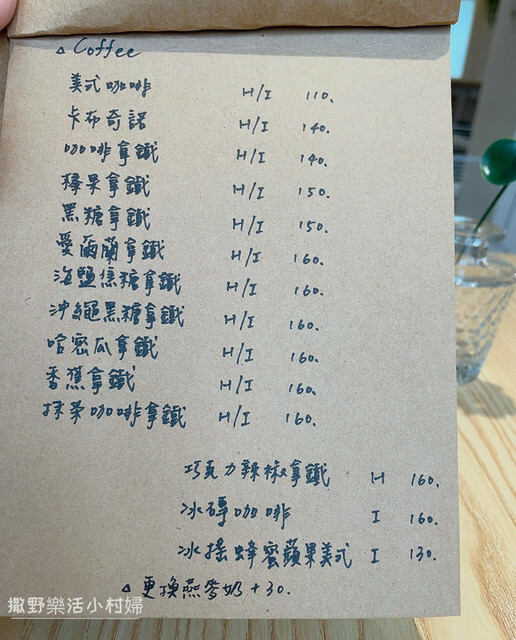 △ Coffee
美式咖啡 H/I 110.
卡布奇諾 H/I 140.
咖啡拿鐵 H/I 140.
榛果拿鐵 H/I 150.
黑糖拿鐵 H/I 150.
愛爾蘭拿鐵 H/I 160.
海鹽焦糖拿鐵 H/I 160.
沖繩黑糖拿鐵 H/I 160.
哈密瓜拿鐵 H/I 160.
香蕉拿鐵 H/I 160.
抹茶咖啡拿鐵 H/I 160.
巧克力辣椒拿鐵 H 160.
冰磚咖啡 I 160.
冰搖蜂蜜蘋果美式 I 130.
△ 更換燕麥奶+30.
撒野樂活小村婦